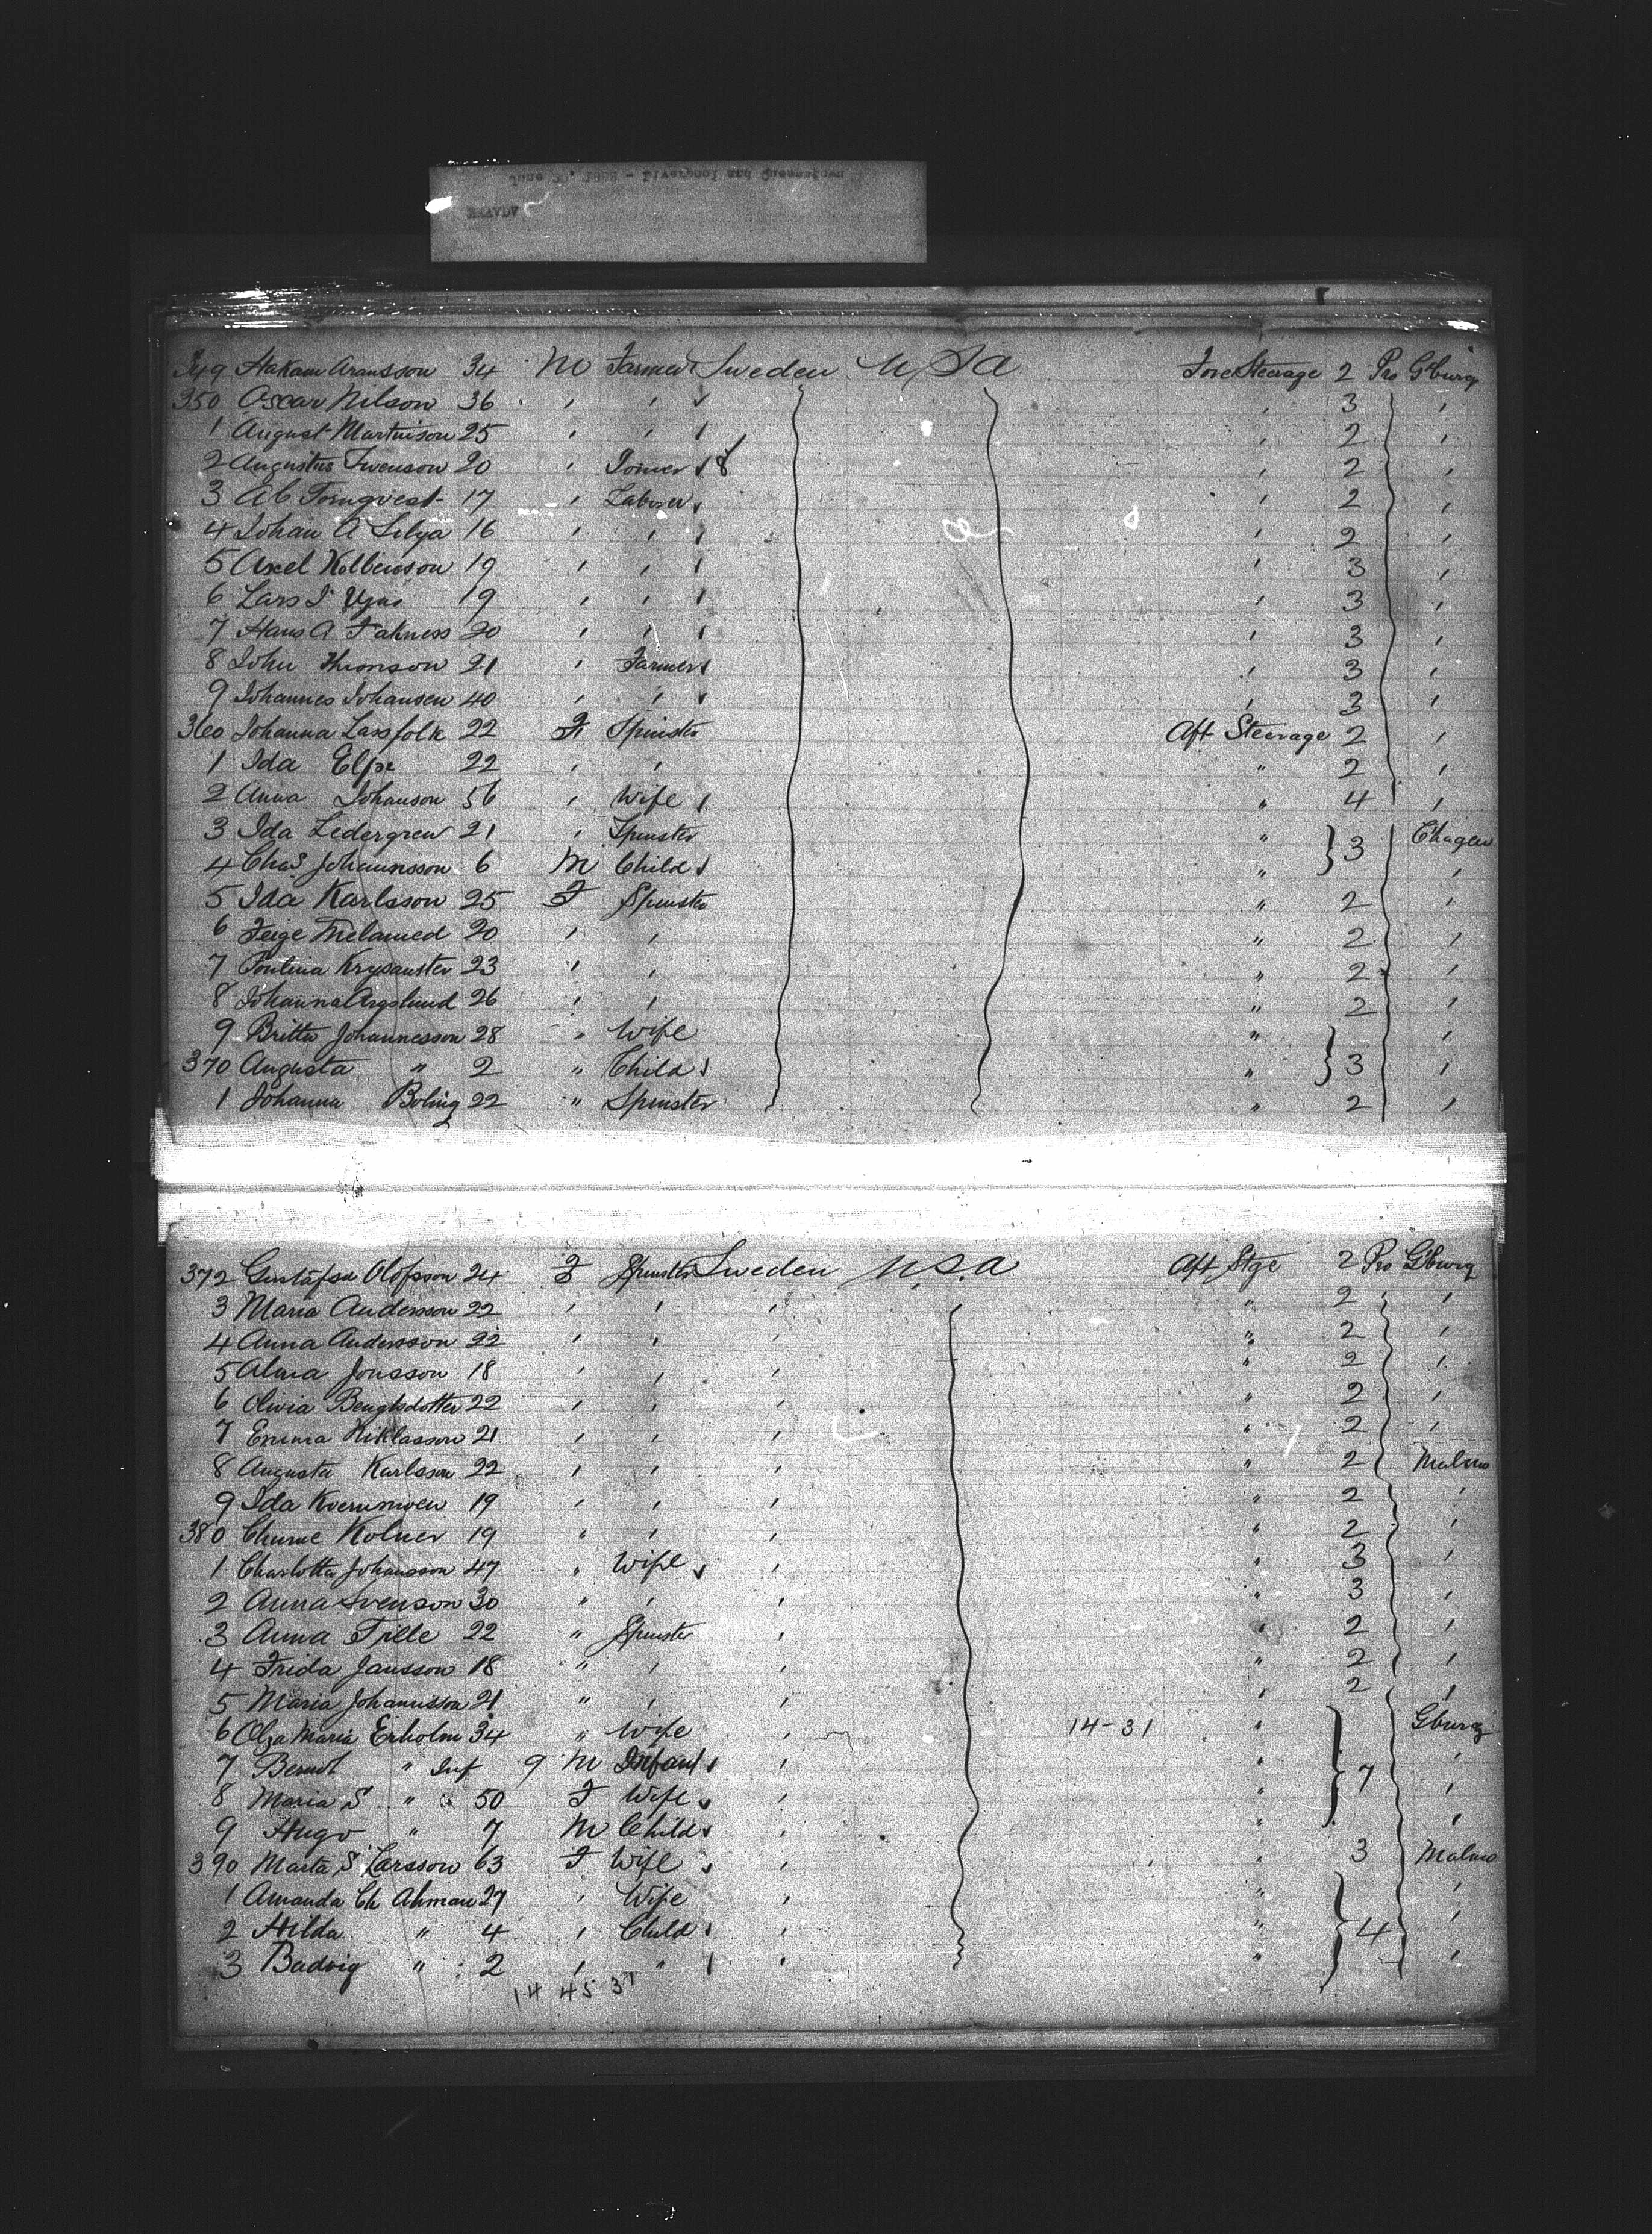 349 Hakam Aransson 34 M Farmer Sweden U S A Fore Steerage 2 Pro G'burg
350 Oscar Nilson 36 , , , 3 ,
1 August Martinson 25 , , , 2 ,
2 Augustus Swenson 20 , Joiner , 2 ,
3 A C Tornqvest 17 , Laborer , 2 ,
4 Johan A Lilya 16 , , , 2 ,
5 Axel 19 , , , 3 ,
6 Lars 19 , , , 3 ,
7 Hans A Fakness 20 , , , 3 ,
8 John Thronson 21 , Farmer , 3 ,
9 Johannes Johansen 40 , , , 3 ,
360 Johanna Lassfolk 22 F Spinster Aft Steerage 2 ,
1 Ida 22 , , " 2 ,
2 Anna Johanson 56 , Wife " 4 ,
3 Ida Ledergren 21 , Spinster " 3
4 Chas Johannsson 6 M Child " ,
5 Ida Karlsson 25 F Spinster " 2 ,
6 Feige Melamed 20 , , " 2 ,
7 23 , , " 2 ,
8 Johanna 26 , , " 2 ,
9 Britta Johannesson 28 " Wife " ,
370 Augusta " 2 " Child " 3 ,
1 Johanna Boling 22 " Spinster " 2 ,
372 Gustafsa Olofsson 24 F Spinster Sweden U.S.A Aft Stge 2 Pro G'burg
3 Maria Andersson 22 , , , " 2 ,
4 Anna Andersson 22 , , " 2 ,
5 Alma Jonsson 18 , , , " 2 ,
6 Olivia Bengtsdotter 22 , , , " 2 ,
7 Emma Niklasson 21 , , , " 2 ,
8 Augusta Karlsson 22 , , , " 2 Malmo
9 Ida 19 , , , " 2 ,
380 Kolner 19 " , , " 2 ,
1 Charlotta Johansson 47 " Wife , " 3 ,
2 Anna Svenson 30 " , , " 3 ,
3 Anna Tille 22 " Spinster , " 2 ,
4 Frida Jansson 18 " , , " 2 ,
5 Maria Johannsson 21 " , , " 2 ,
6 Olga Maria Erholm 34 " Wife , 14-31 " Gburg
7 Berndt " Inf 9 M Infant , " 7 ,
8 Maria S " 50 F Wife , " ,
9 Hugo " 7 M Child , " ,
390 Marta S Larsson 63 F Wife , " 3 Malmo
1 Amanda Ch Ahman 27 , Wife , " ,
2 Hilda " 4 , Child , " 4 ,
3 Badvig " 2 , " , " ,
14 45 31